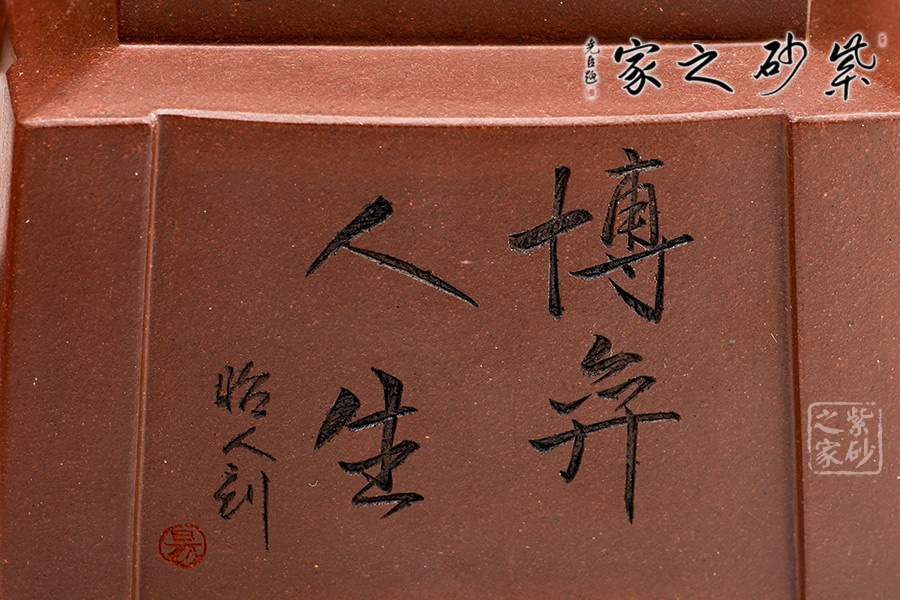 紫砂之家
尧臣题
博弈
人生
昭人刻
紫砂
之家